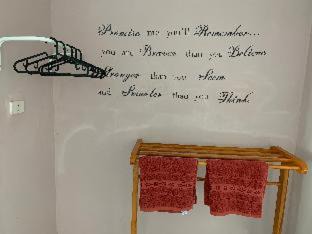 Promise me you'll Remember...
you are Braver than you Believe
Stronger than you Seem
and Smarter than you Think.